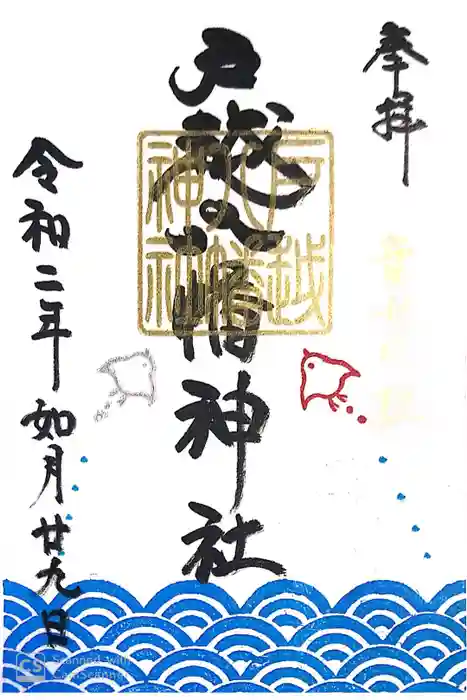 奉拝
戸越八幡神社
戸越
八幡
神社
令和二年如月廿九日
CS Scanned with
CamScanner